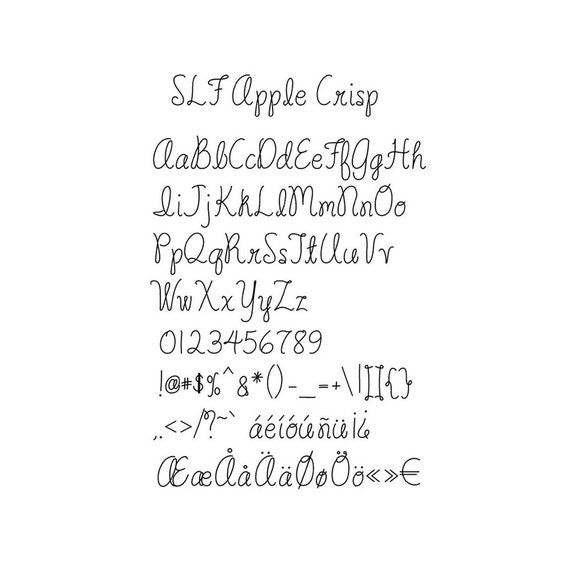 SLF Apple Crisp
AaBbCcDdEeFfGgHh
IiJjKkLlMmNnOo
PpQqRrSsTtUuVv
WwXxYyZz
0123456789
!@#$%^&*()-_=+\|[]{}
,.<>/?~` áéíóúñü¡¿
ÆæÅåÄäØøÖö«»€